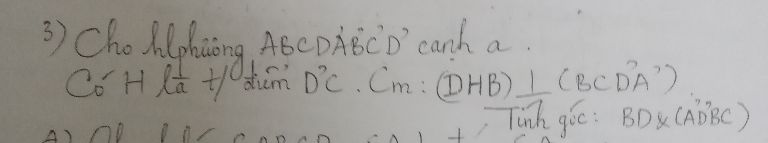 3) Cho hlphương ABCDA'B'C'D' cạnh a.
Có H là t/điểm D'C. Cm: (DHB) ⊥ (BCD'A')
Tính góc: BD & (A'D'BC)